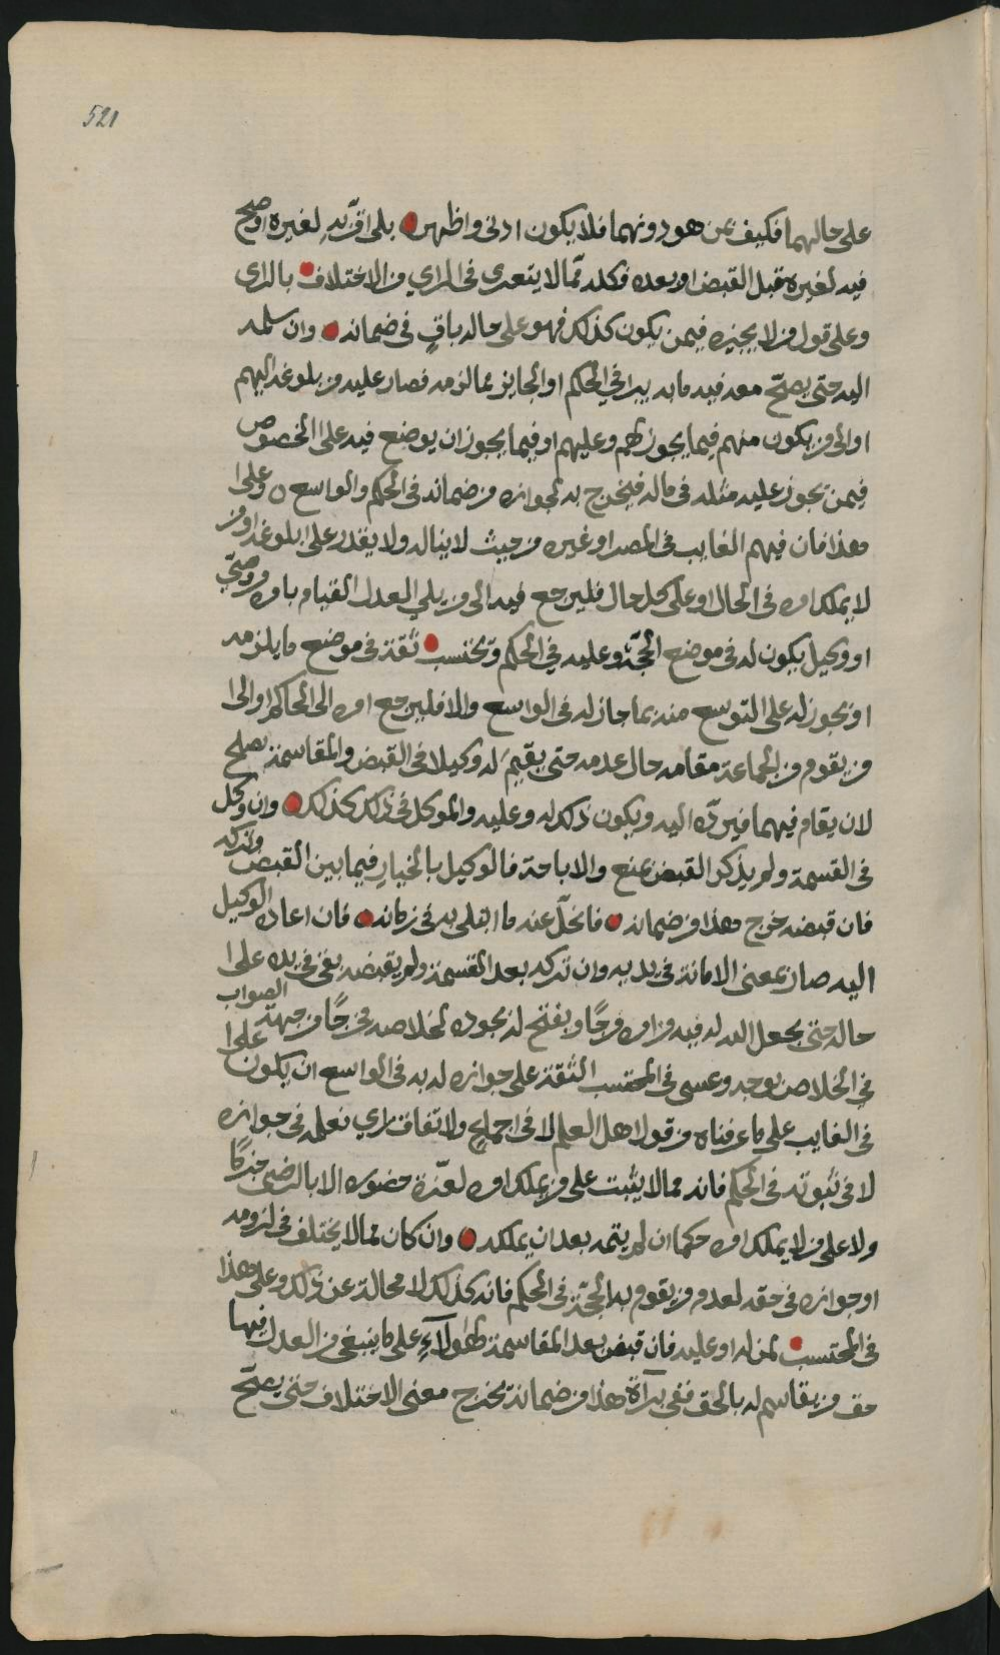 521
على حالهما فكيف بمن هو دونهما فلا يكون ادنى واظهر بلى ان اقرّ به لغيره او صح
فيه لغيره قبل القبض او بعده فكله ممّا لا يتعدى في الراي من الاختلاف بالراي
وعلى قول من لا يجيزه فيمن يكون كذلك فهو على حاله باقٍ في ضمانه وان سلمه
اليه حتى يصحّ معه فيه ما به يبرا في الحكم او الجايز مما لزمه فصار عليه من بلوغه اليهم
او الى من يكون منهم فيما يجوز لهم وعليهم او فيما يجوز ان يوضع فيه على الخصوص
فيمن يجوز عليه مثله في ماله فيخرج به لجوازه من ضمانه في الحكم والواسع وعلى
هذا فان فيهم الغايب في المصر او غيره من حيث لا يناله ولا يقدر على ابلوغه او من
لا يملك امره في الحال او على كل حال فليرجع فيه الى من يلي العدل القيام بامره من وصيّ
او وكيل يكون له في موضع الحجّة وعليه في الحكم ومحتسب ثقة في موضع ما يلزمه
او يجوز له على التوسع منه بما جاز له في الواسع والا فليرجع امره الى الحاكم او الى
من يقوم من الجماعة مقامه حال عدمه حتى يقيم له وكيلا في القبض والمقاسمة يصلح
لان يقام فيهما فيردّه اليه ويكون ذلك له وعليه والموكل في ذلك كذلك وان وكل
في القسمة ولم يذكر القبض بمنع ولا اباحة فالوكيل بالخيار فيما بين القبض وتركه
فان قبضه خرج هذا من ضمانه فانحلّ عنه ما ابتلى به في زمانه فان اعاده الوكيل
اليه صار بمعنى الامانة في يديه وان تركه بعد القسمة ولم يقبضه بقى في يده على
حاله حتى يجعل الله له فيه من امره فرجًا ويفتح له بجوده لخلاصه مخرجًا من جهة الصواب
في الخلاص بوجه وعسى في المحتسب الثقة على جوازه له به في الواسع ان يكون على
في الغايب على ما عرفناه من قول اهل العلم لا في اجماع ولا اتفاق راي نعلمه في جوازه
لا في ثبوته في الحكم فانه مما لا يثبت على من يملك امره لعذّة حضوره الا بالرضى جزمًا
ولا على من لا يملك امره حكما ان لم يتمه بعد ان يملكه وان كان مما لا يختلف في لزومه
او جوازه في حقه لعدم من يقوم به الحجّة في الحكم فانه كذلك لا محالة عن ذلك وعلى هذا
في المحتسب لمن له او عليه فان قبض بعد المقاسمة لهؤلاءِ على ما ينبغى من العدل فيها
حق من يقاسم له بالحق ففي برآة هذا من ضمانه يخرج معنى الاختلاف حتى يصحّ